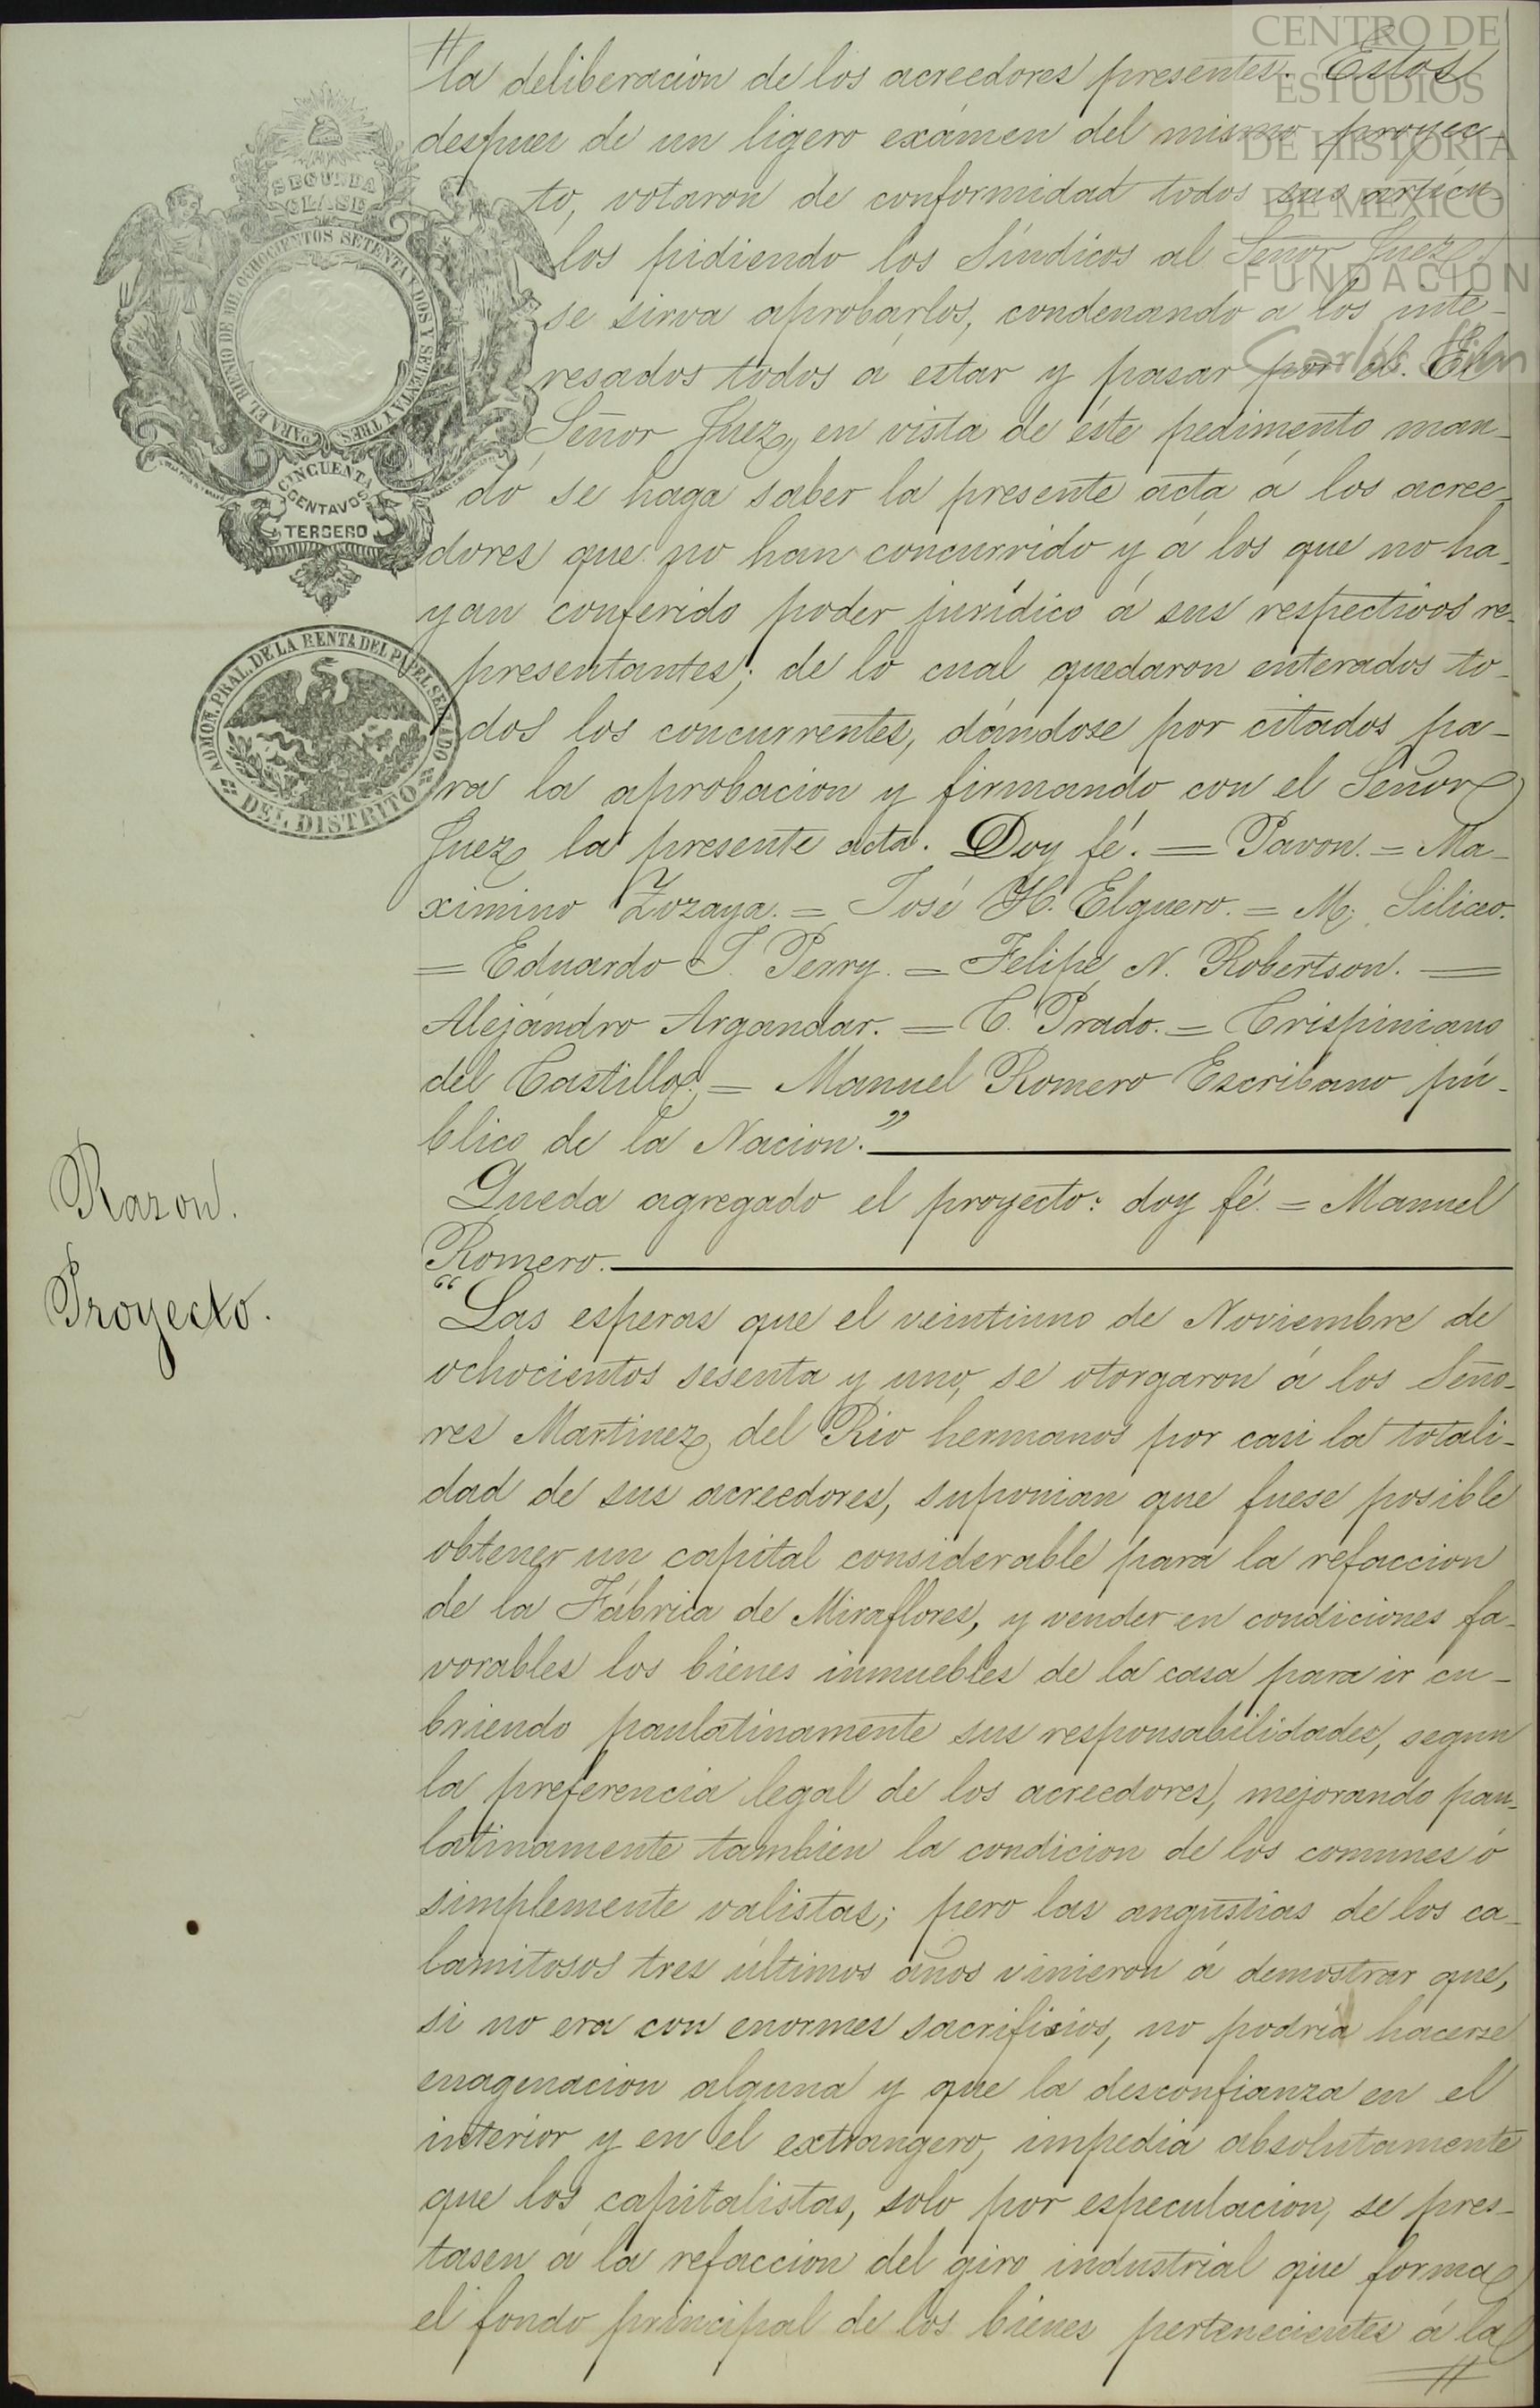 CENTRO DE
ESTUDIOS
DE HISTORIA
DE MEXICO
FUNDACION
Carlos Slim
SEGUNDA
CLASE
PARA EL BIENIO DE MIL OCHOCIENTOS SETENTA Y DOS Y SETENTA Y TRES
CINCUENTA
CENTAVOS
TERCERO
ADMON. PRAL. DE LA RENTA DEL PAPEL SELLADO
DEL DISTRITO
la deliberacion de los acreedores presentes. Estos
despues de un ligero exámen del mismo proyec-
to, votaron de conformidad todos sus artícu-
los pidiendo los Síndicos al Señor Juez
se sirva aprobarlos, condenando a los inte-
resados todos a estar y pasar por él. El
Señor Juez, en vista de éste pedimento man-
dó se haga saber la presente acta á los acree-
dores que no han concurrido y á los que no ha-
yan conferido poder jurídico á sus respectivos re-
presentantes; de lo cual quedaron enterados to-
dos los concurrentes, dándose por citados pa-
ra la aprobacion y firmando con el Señor
Juez la presente acta. Doy fé. = Pavon. = Ma-
ximino Zozaya. = José H. Elguero. = M. Siliceo.
= Eduardo J. Perry. = Felipe N. Robertson. =
Alejandro Argandar. = C. Prado. = Crispiniano
del Castillo. = Manuel Romero Escribano pú-
blico de la Nacion."
Razon.
Queda agregado el proyecto: doy fé. = Manuel
Romero.
Proyecto.
"Las esperas que el veintiuno de Noviembre de
ochocientos sesenta y uno, se otorgaron á los Seño-
res Martinez del Rio hermanos por casi la totali-
dad de sus acreedores, suponian que fuese posible
obtener un capital considerable para la refaccion
de la Fábrica de Miraflores, y vender en condiciones fa-
vorables los bienes inmuebles de la casa para ir cu-
briendo paulatinamente sus responsabilidades, segun
la preferencia legal de los acreedores, mejorando pau-
latinamente tambien la condicion de los comunes ó
simplemente valistas; pero las angustias de los ca-
lamitosos tres últimos años vinieron á demostrar que,
si no era con enormes sacrificios, no podria hacerse
enagenacion alguna y que la desconfianza en el
interior y en el extrangero, impedia absolutamente
que los capitalistas, solo por especulacion, se pres-
tasen á la refaccion del giro industrial que forma
el fondo principal de los bienes pertenecientes á la